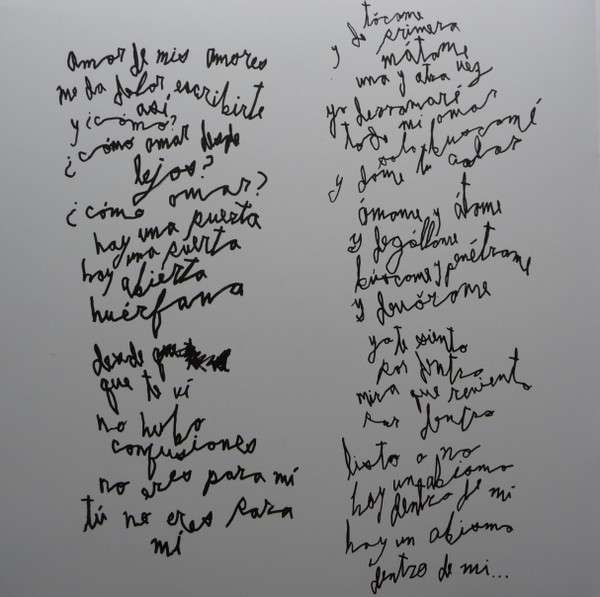 amor de mis amores
me da dolor escribirte
así
y ¿cómo?
¿cómo amar desde
lejos?
¿cómo amar?
hay una puerta
hay una puerta
abierta
huérfana
desde
que te vi
no hubo
confusiones
no eres para mí
tú no eres para
mí
tócame
y de primera
mátame
una y otra vez
yo derramaré
todo mi amar
solo búscame
y dame tu
ámame y átame
y dególlame
búscame y penétrame
y devórame
ya te siento
por dentro
mira que reviento
por dentro
listo o no
hay un abismo
dentro de mi
hay un abismo
dentro de mi...